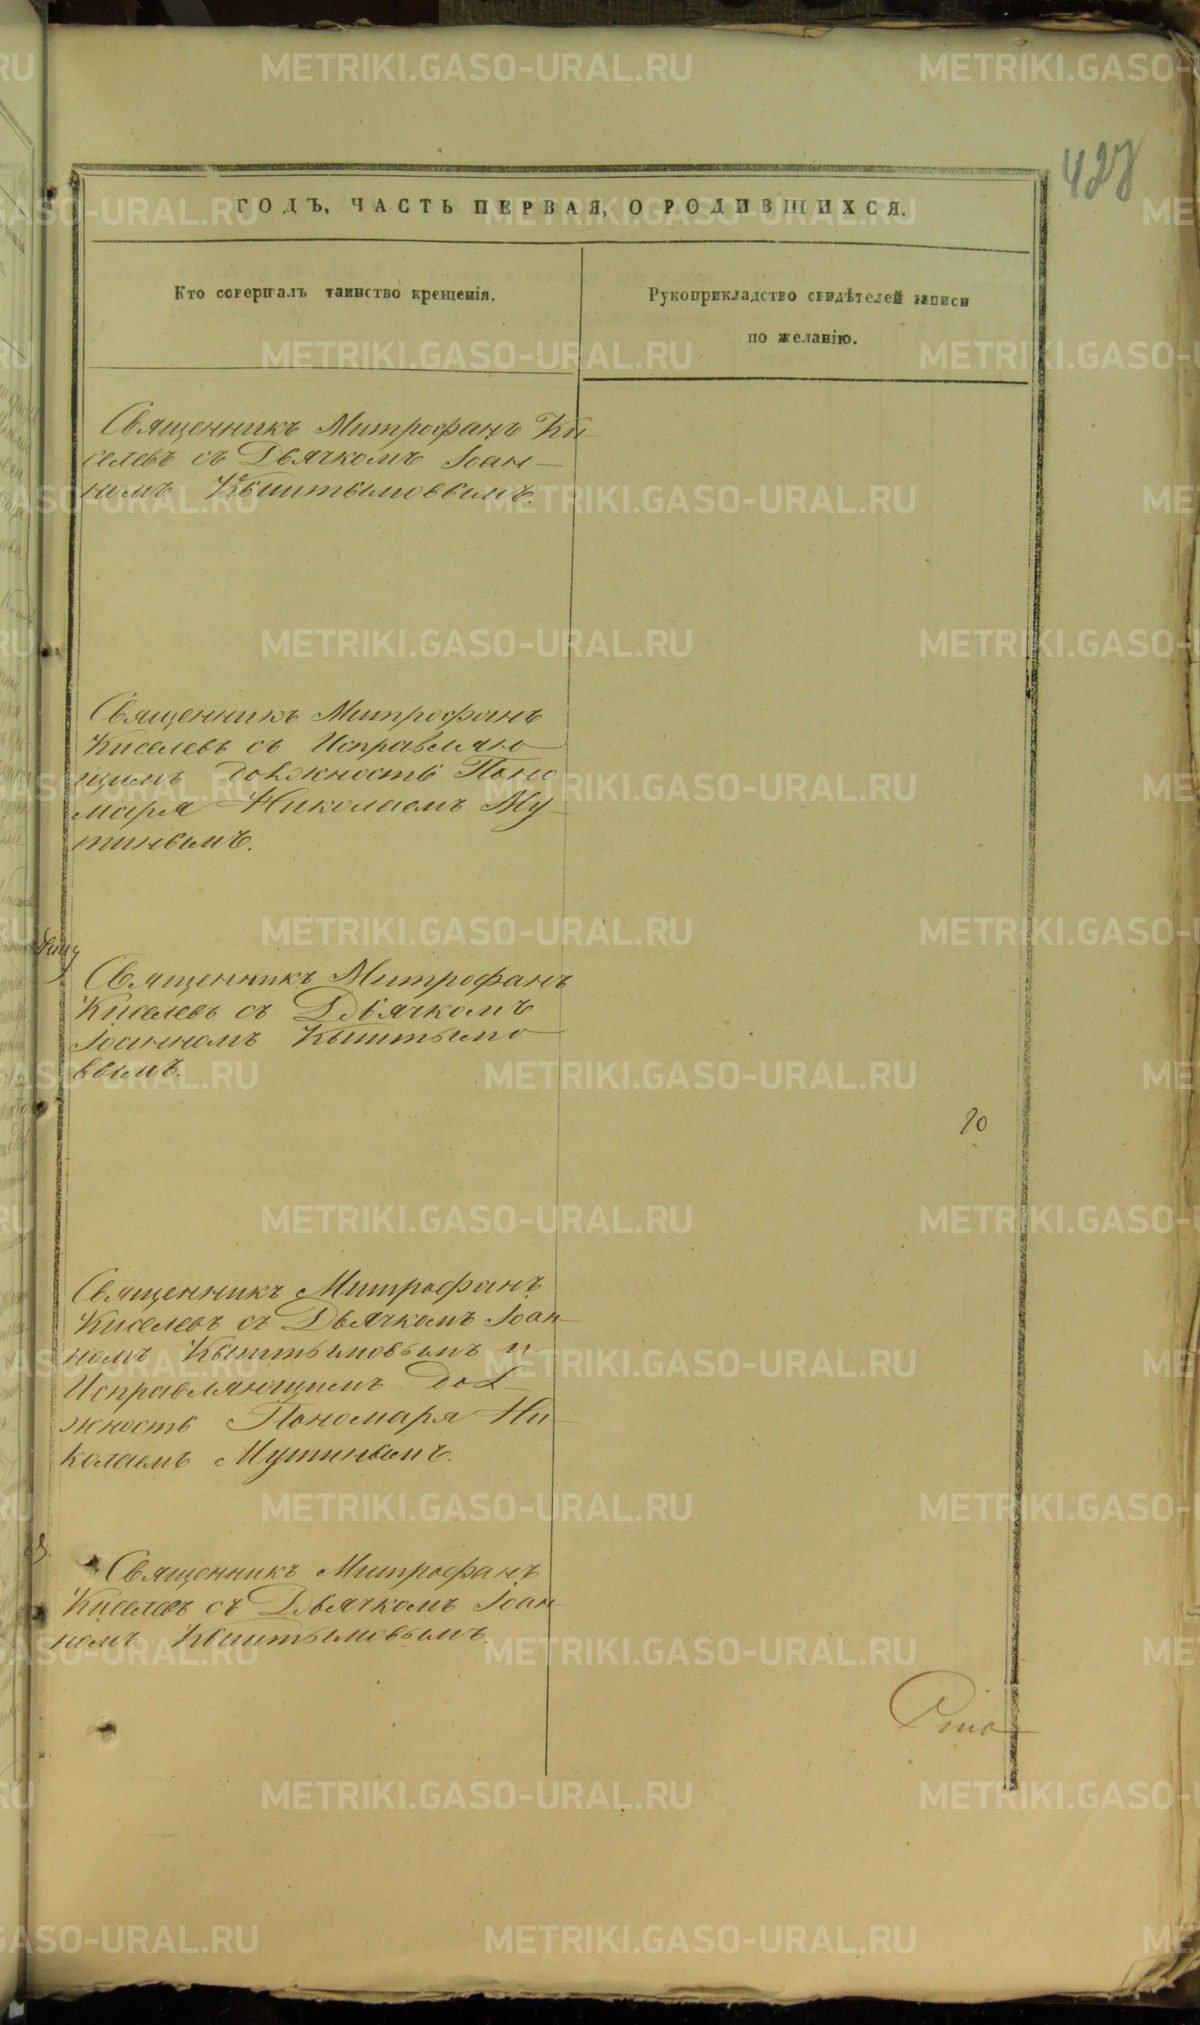 ГОДЪ, ЧАСТЬ ПЕРВАЯ, О РОДИВШИХСЯ.
Кто совершалъ таинство крещенія.
Рукоприкладство свидѣтелей записи
по желанію.
Священникъ Митрофанъ Ки-
селевъ съ Дьячкомъ Іоан-
номъ Кыштымовымъ.
Священникъ Митрофанъ
Киселевъ съ Исправляю-
щимъ должность Поно
маря Николаемъ Му-
тинымъ.
Священникъ Митрофанъ
Киселевъ съ Дьячкомъ
Іоанномъ Кыштымо-
вымъ.
Священникъ Митрофанъ
Киселевъ съ Дьячкомъ Іоан-
номъ Кыштымовымъ и
Исправляющимъ дол-
жность Пономаря Ни-
колаемъ Мутинымъ.
Священникъ Митрофанъ
Киселевъ съ Дьячкомъ Іоан
номъ Кыштымовымъ.
METRIKI.GASO-URAL.RU